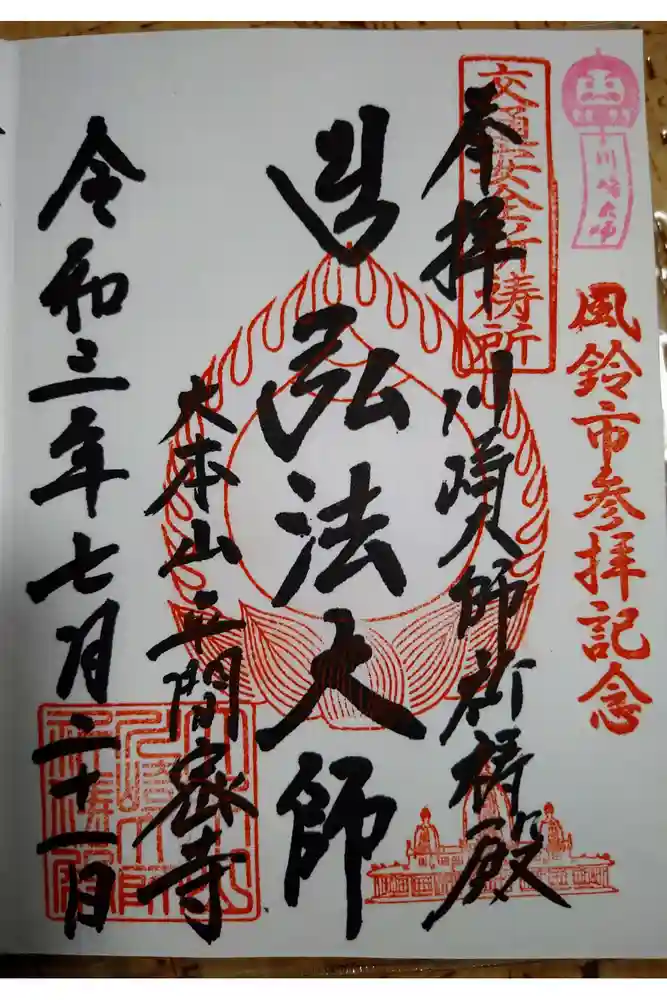 川崎大師
風鈴市参拝記念
交通安全祈祷所
奉拝
川崎大師祈祷殿
弘法大師
大本山平間密寺
令和三年七月二十一日